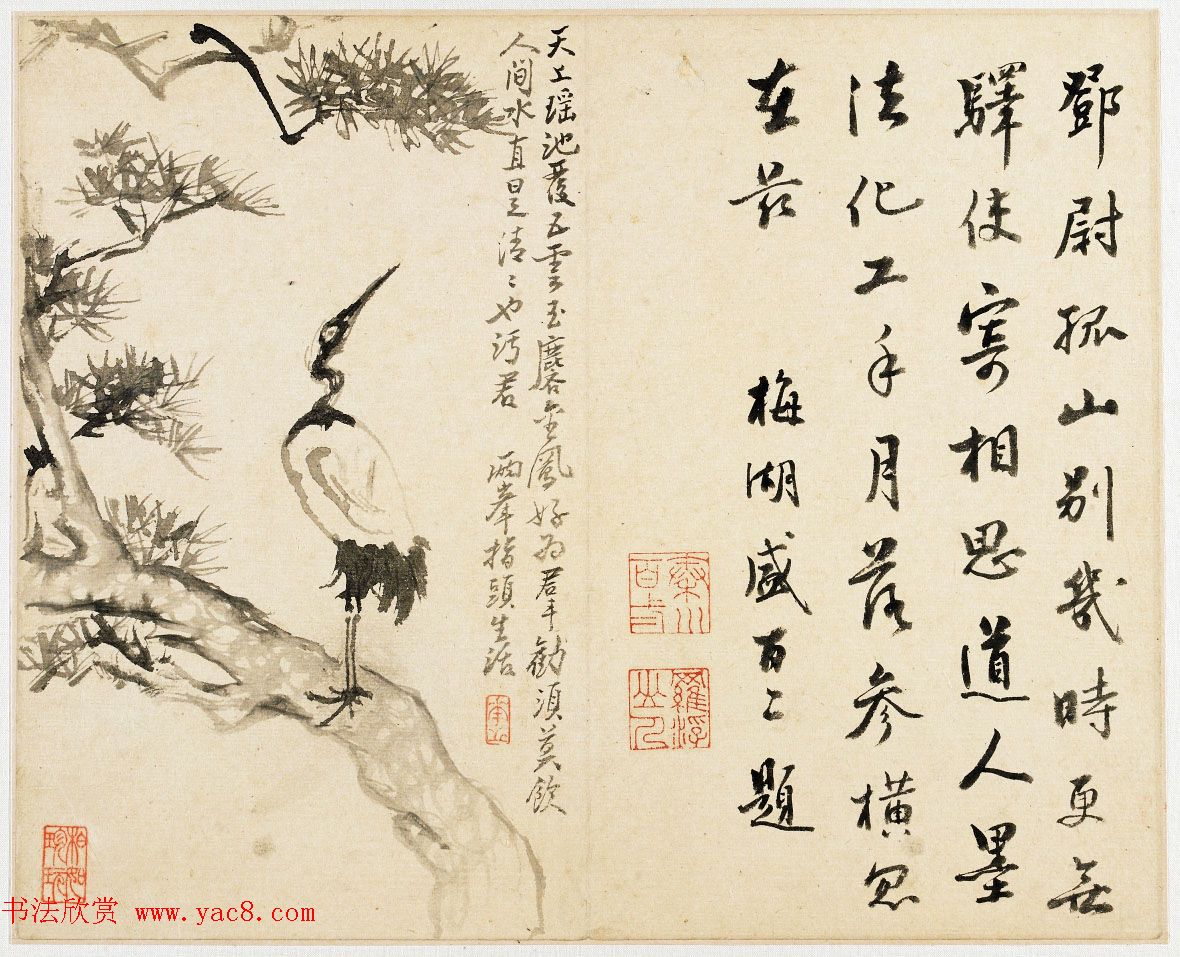 鄧尉孤山別幾時更無
驛使寄相思道人墨
法化工手月落參橫忽
在茲 梅湖盛百二題
天上瑶池覆五雲玉麐金鳳好為羣勸須莫飲
人间水直是清〻也污君 兩峯指頭生活
书法欣赏 www.yac8.com